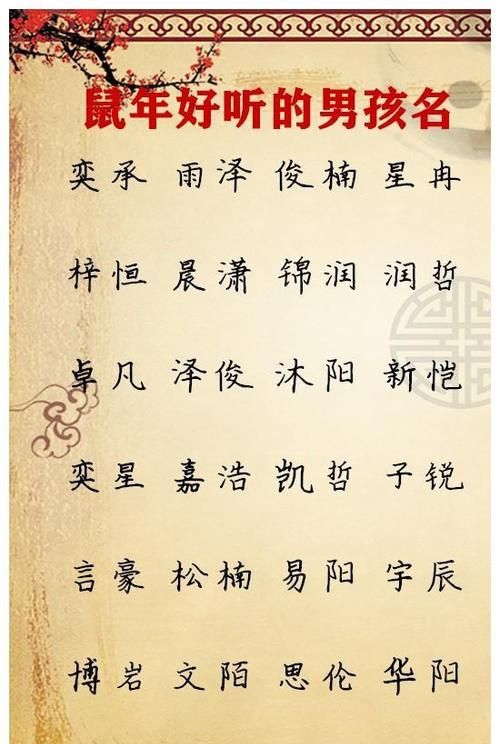 鼠年好听的男孩名
奕承 雨泽 俊楠 星冉
梓恒 晨潇 锦润 润哲
卓凡 泽俊 沐阳 新恺
奕星 嘉浩 凯哲 子锐
言豪 松楠 易阳 宇辰
博岩 文陌 思伦 华阳